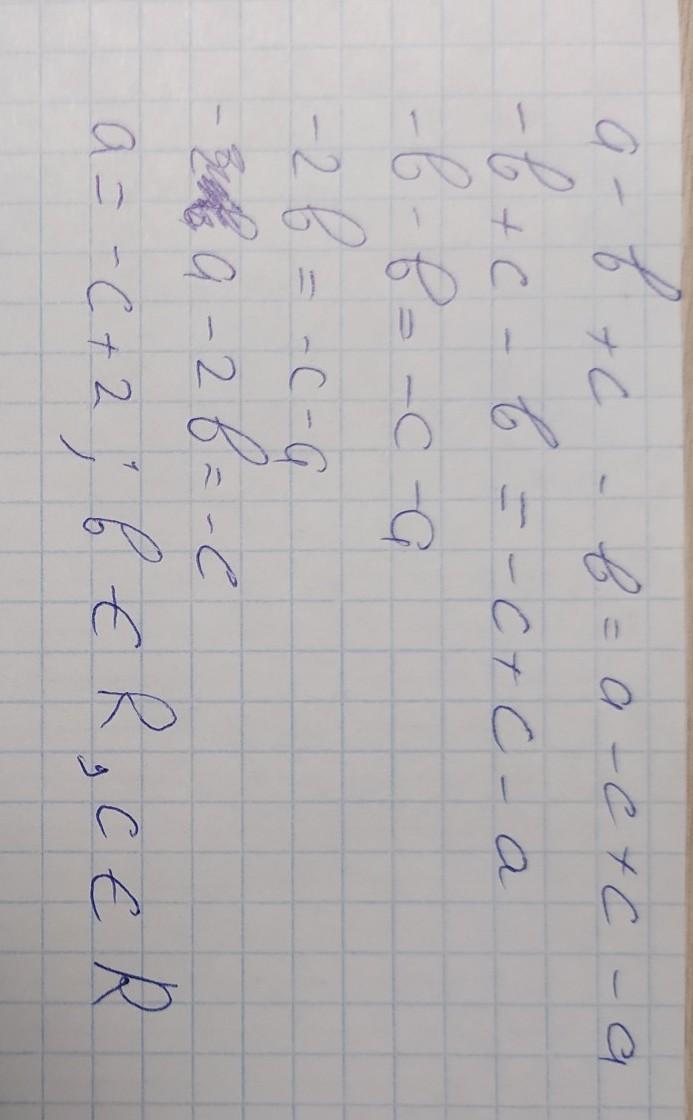 a - b + c - b = a - c + c - a
- b + c - b = - c + c - a
- b - b = - c - a
- 2b = - c - a
- a - 2b = - c
a = - c + 2 ; b ∈ R, c ∈ R